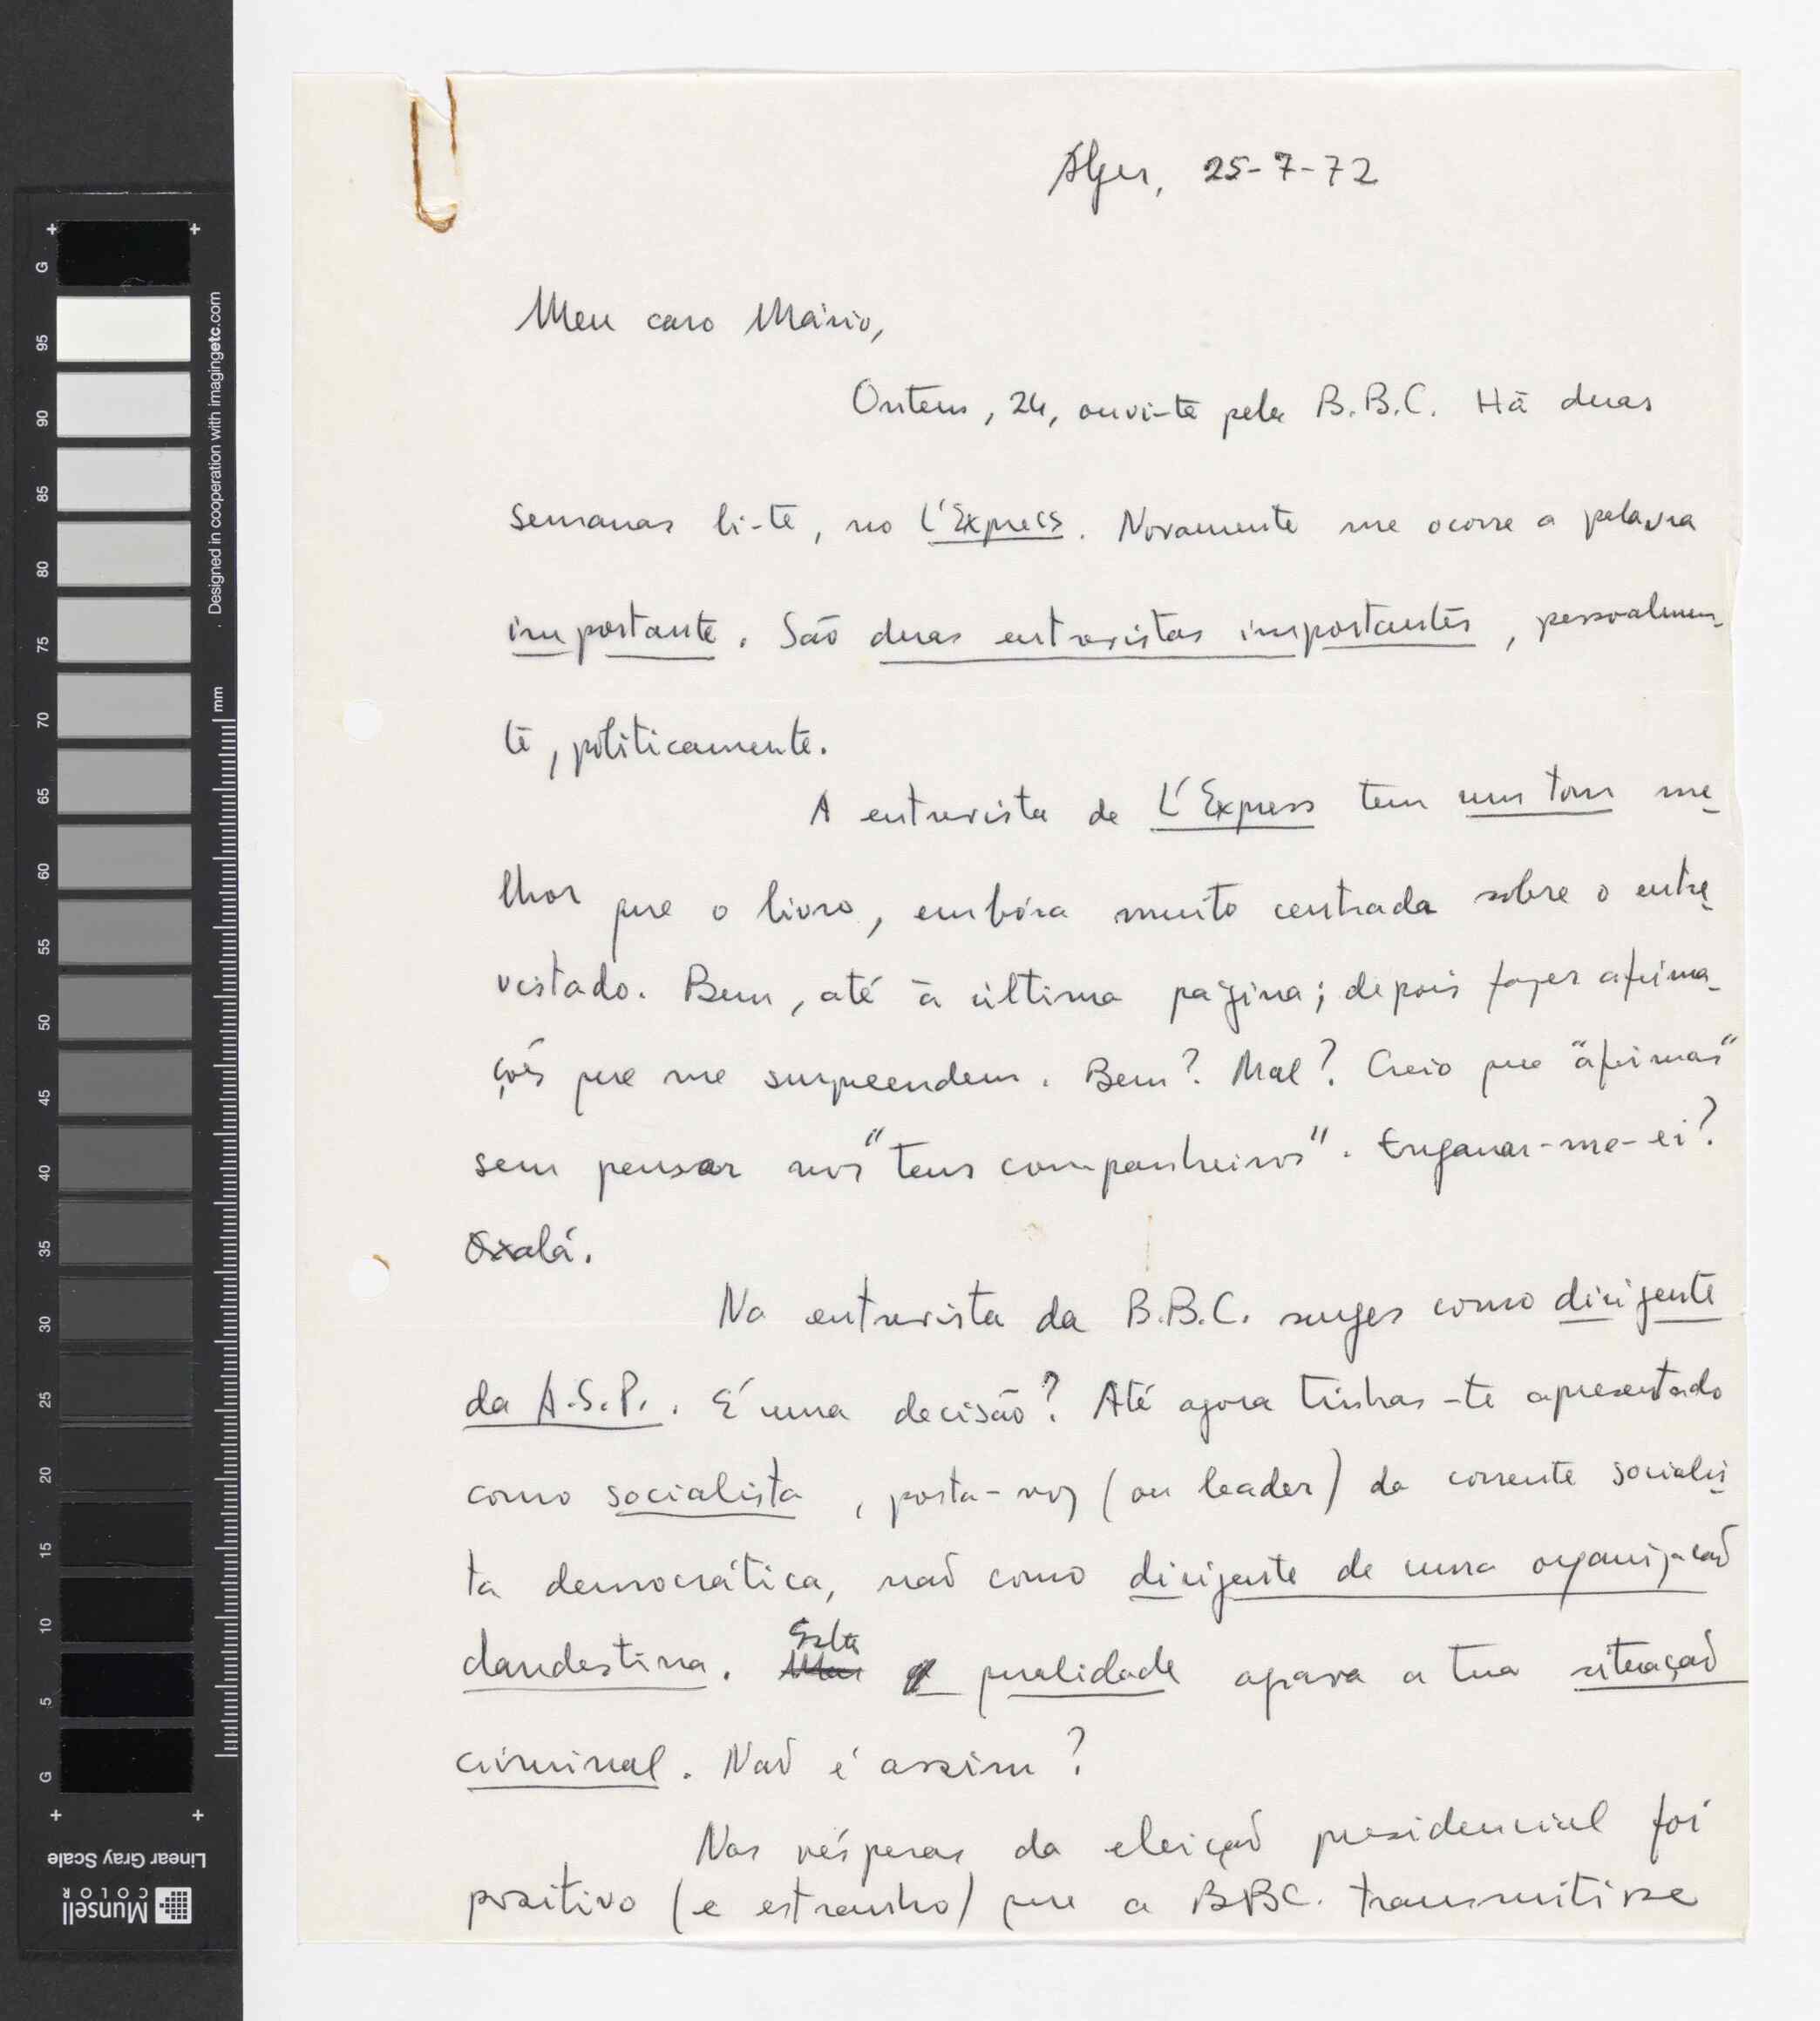 Alger, 25-7-72
Meu caro Mário,
Ontem, 24, ouvi-te pela B.B.C. Há duas
semanas li-te, no L'Express. Novamente me ocorre a palavra
importante. São duas entrevistas importantes, pessoalmen-
te, politicamente.
A entrevista de L'Express tem um tom me-
lhor que o livro, embóra muito centrada sobre o entre-
vistado. Bem, até à última página; depois fazes afirma-
ções que me surpreendem. Bem? Mal? Creio que "afirmas"
sem pensar nos "teus companheiros". Enganar-me-ei?
Oxalá.
Na entrevista da B.B.C. surges como dirigente
da A.S.P.. É uma decisão? Até agora tinhas-te apresentado
como socialista, porta-voz (ou leader) da corrente socialis-
ta democrática, não como dirigente de uma organização
clandestina. Esta qualidade agrava a tua situação
criminal. Não é assim?
Nas vésperas da eleição presidencial foi
positivo (e estranho) que a BBC. transmitisse
G 95 90 85 80 75 70 65 60 55 50 45 40 35 30 25 20 15 10 5 G
mm
. Designed in cooperation with imagingetc.com
Linear Gray Scale
Munsell
COLOR